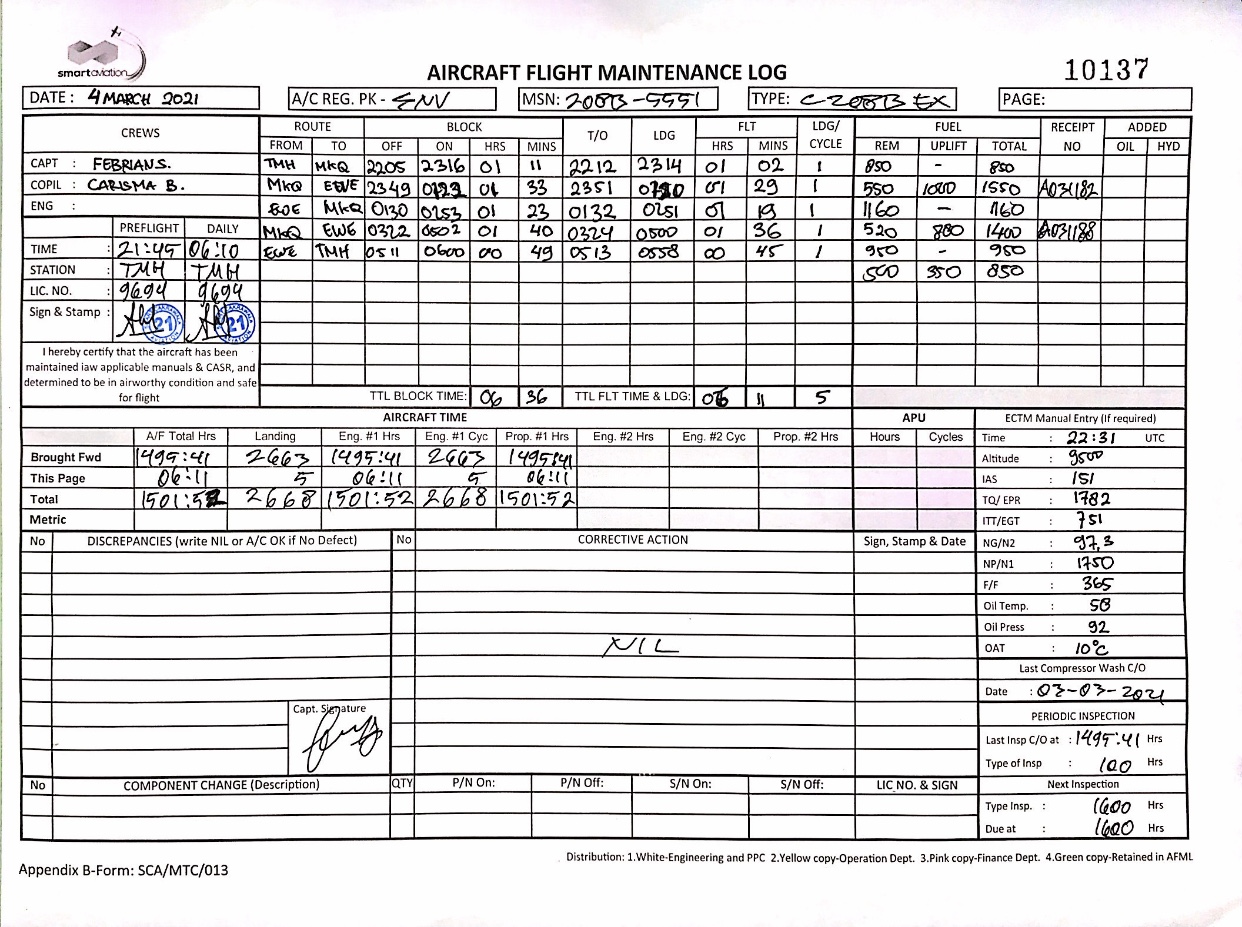 smartaviation
AIRCRAFT FLIGHT MAINTENANCE LOG 10137
DATE : 4 MARCH 2021 A/C REG. PK - SNV MSN: 208B-5551 TYPE: C-208B EX PAGE:
CREWS ROUTE BLOCK T/O LDG FLT LDG/CYCLE FUEL RECEIPT NO ADDED
FROM TO OFF ON HRS MINS HRS MINS REM UPLIFT TOTAL OIL HYD
CAPT : FEBRIAN S. TMH MKQ 2205 2316 01 11 2212 2314 01 02 1 850 - 850
COPIL : CARISMA B. MKQ EWE 2349 0123 01 33 2351 01 29 1 550 1000 1550 A031182
ENG : EWE MKQ 0130 0253 01 23 0132 0251 01 19 1 1160 - 1160
PREFLIGHT DAILY MKQ EWE 0322 0502 01 40 0324 0500 01 36 1 520 880 1400 A031188
TIME : 21:45 06:10 EWE TMH 0511 0600 00 49 0513 0558 00 45 1 950 - 950
STATION : TMH TMH 500 350 850
LIC. NO. : 9694 9694
Sign & Stamp : 21 21
I hereby certify that the aircraft has been
maintained iaw applicable manuals & CASR, and
determined to be in airworthy condition and safe
for flight
TTL BLOCK TIME: 06 36 TTL FLT TIME & LDG: 06 11 5
AIRCRAFT TIME APU ECTM Manual Entry (If required)
A/F Total Hrs Landing Eng. #1 Hrs Eng. #1 Cyc Prop. #1 Hrs Eng. #2 Hrs Eng. #2 Cyc Prop. #2 Hrs Hours Cycles Time : 22:31 UTC
Brought Fwd 1495:41 2663 1495:41 2663 1495:41 Altitude : 9500
This Page 06:11 5 06:11 5 06:11 IAS : 151
Total 1501:52 2668 1501:52 2668 1501:52 TQ/ EPR : 1782
Metric ITT/EGT : 751
No DISCREPANCIES (write NIL or A/C OK if No Defect) No CORRECTIVE ACTION Sign, Stamp & Date NG/N2 : 97,3
NP/N1 : 1750
F/F : 365
Oil Temp. : 58
Oil Press : 92
NIL OAT : 10°C
Last Compressor Wash C/O
Date : 03-03-2021
Capt. Signature PERIODIC INSPECTION
Last Insp C/O at : 1495:41 Hrs
Type of Insp : 100 Hrs
No COMPONENT CHANGE (Description) QTY P/N On: P/N Off: S/N On: S/N Off: LIC NO. & SIGN Next Inspection
Type Insp. : 1600 Hrs
Due at : 1600 Hrs
Distribution: 1.White-Engineering and PPC 2.Yellow copy-Operation Dept. 3.Pink copy-Finance Dept. 4.Green copy-Retained in AFML
Appendix B-Form: SCA/MTC/013